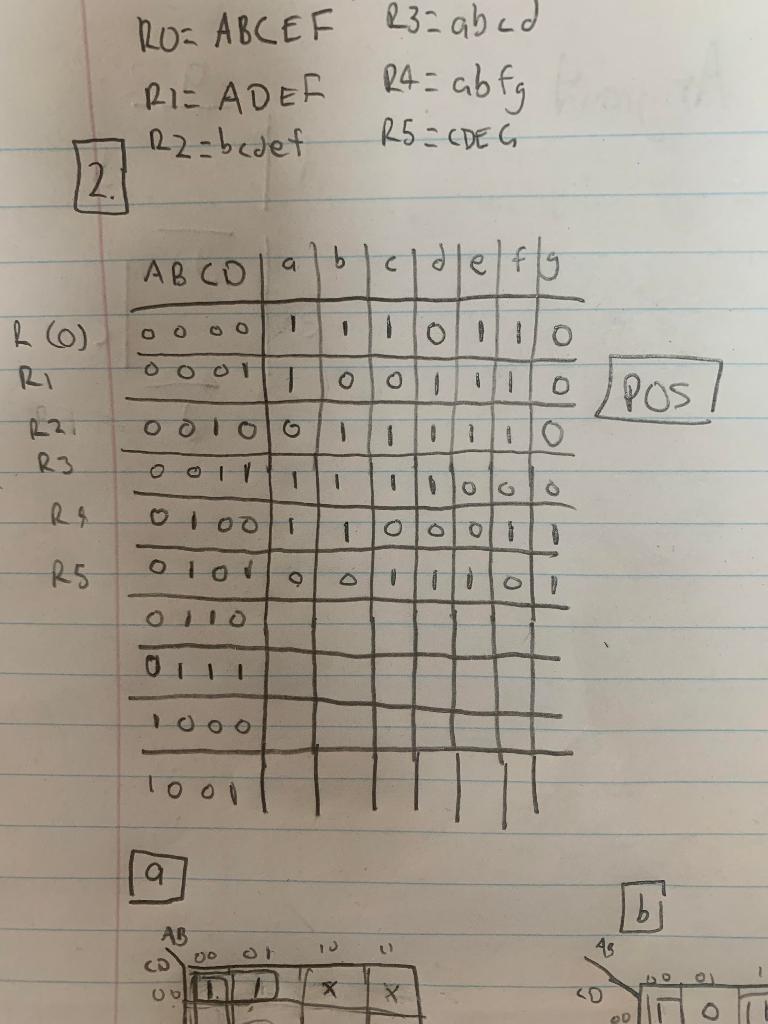 R0= ABCEF R3=abcd
R1= ADEF R4= abfg
R2=bcdef R5=CDEG
2.
A B C D a b c d e f g
R (0) 0 0 0 0 1 1 1 0 1 1 0
R1 0 0 0 1 1 0 0 1 1 1 0
POS
R2 0 0 1 0 0 1 1 1 1 1 0
R3 0 0 1 1 1 1 1 1 0 0 0
R4 0 1 0 0 1 1 0 0 0 1 1
R5 0 1 0 1 0 0 1 1 1 0 1
0 1 1 0
0 1 1 1
1 0 0 0
1 0 0 1
a
b
AB
CD 00 01 10 11
00 1 1 x x
AB
CD 00 01 1
00 1 0